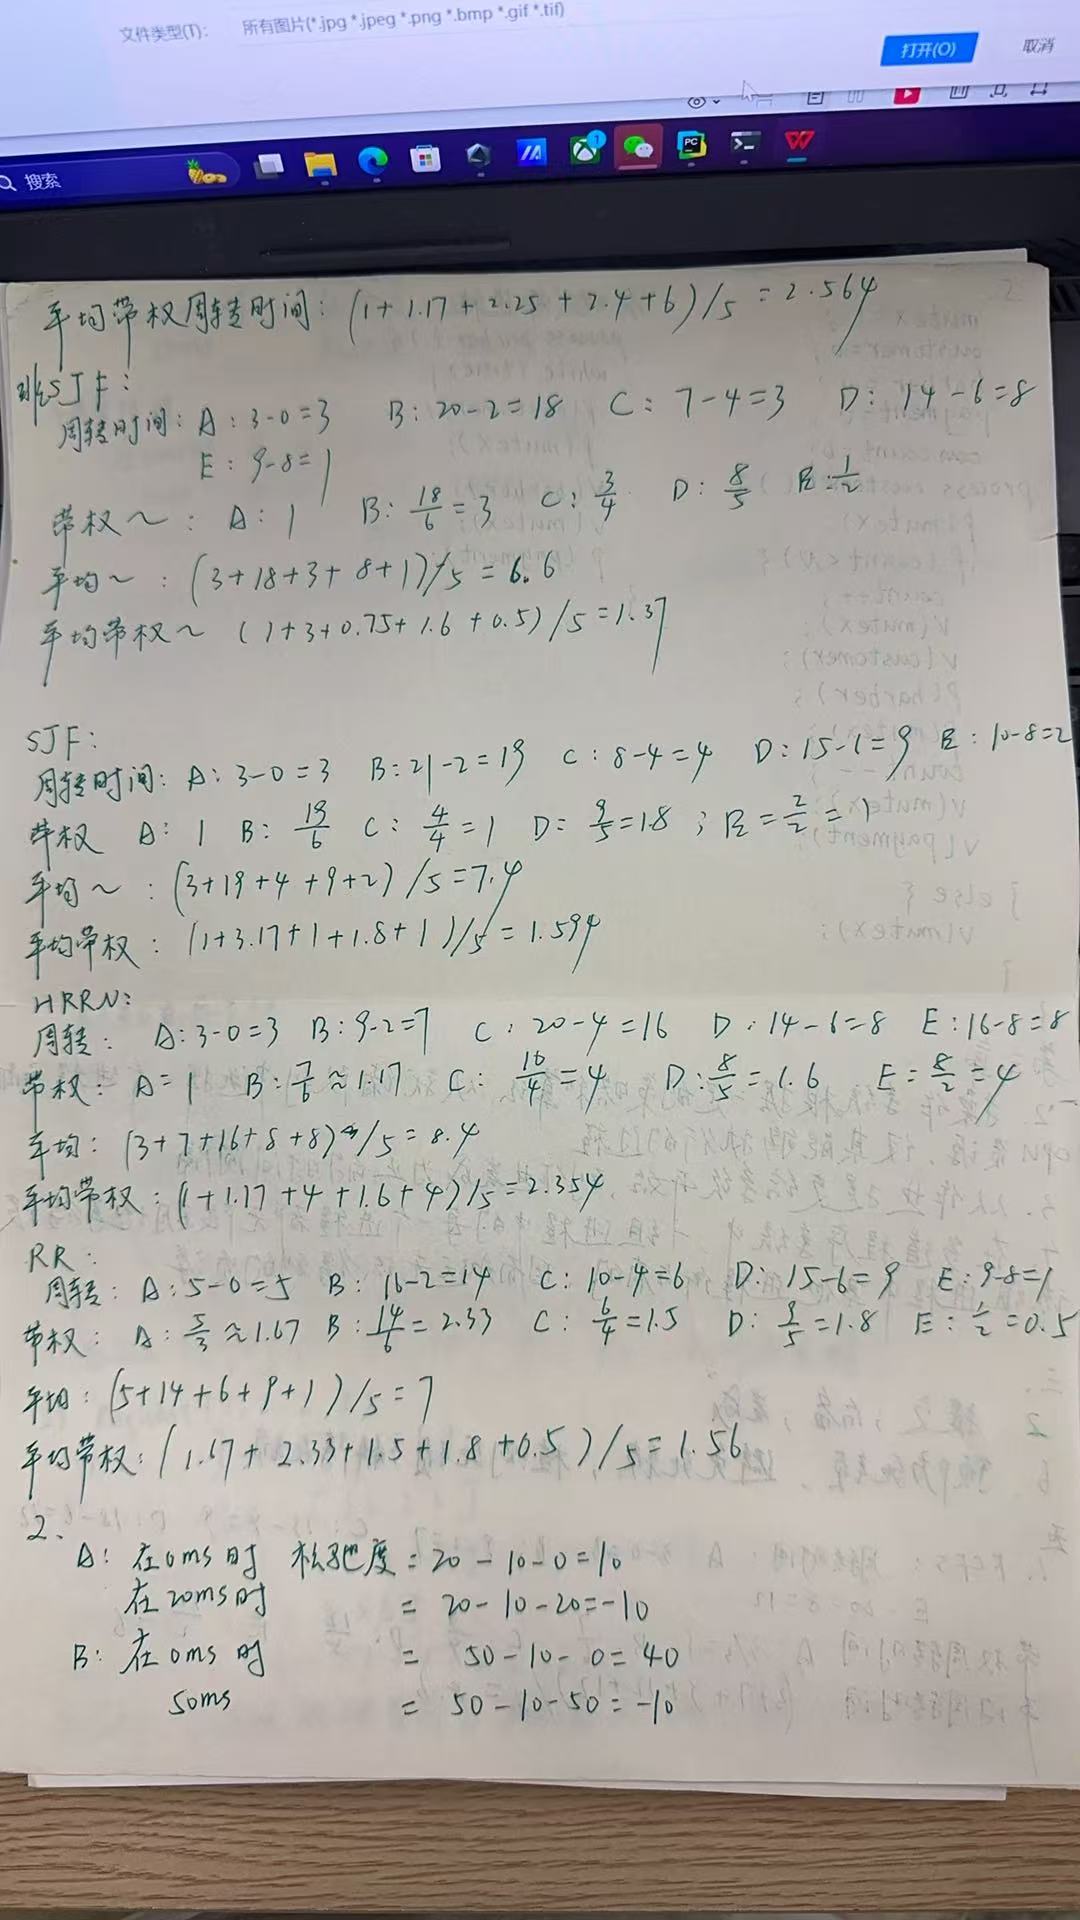 文件类型(T):
所有图片(*.jpg *.jpeg *.png *.bmp *.gif *.tif)
打开(O)
取消
搜索
平均带权周转时间: (1+1.17+2.25+2.4+6)/5=2.564
非SJF:
周转时间: A: 3-0=3 B: 20-2=18 C: 7-4=3 D: 14-6=8
E: 9-8=1
带权~: A: 1 B: 18/6=3 C: 3/4 D: 8/5 E: 1/2
平均~: (3+18+3+8+1)/5=6.6
平均带权~ (1+3+0.75+1.6+0.5)/5=1.37
SJF:
周转时间: A: 3-0=3 B: 21-2=19 C: 8-4=4 D: 15-6=9 E: 10-8=2
带权 A: 1 B: 19/6 C: 4/4=1 D= 9/5=1.8; E=2/2=1
平均~: (3+19+4+9+2)/5=7.4
平均带权: (1+3.17+1+1.8+1)/5=1.594
HRRN:
周转: A: 3-0=3 B: 9-2=7 C: 20-4=16 D: 14-6=8 E: 16-8=8
带权: A=1 B: 7/6≈1.17 C: 16/4=4 D: 8/5=1.6 E=8/2=4
平均: (3+7+16+8+8)/5=8.4
平均带权: (1+1.17+4+1.6+4)/5=2.354
RR:
周转: A: 5-0=5 B: 16-2=14 C: 10-4=6 D: 15-6=9 E: 9-8=1
带权: A: 5/3≈1.67 B: 14/6=2.33 C: 6/4=1.5 D: 9/5=1.8 E: 1/2=0.5
平均: (5+14+6+9+1)/5=7
平均带权: (1.67+2.33+1.5+1.8+0.5)/5=1.56
2、
A: 在0ms时 松弛度=20-10-0=10
在20ms时 =20-10-20=-10
B: 在0ms时 =50-10-0=40
50ms =50-10-50=-10